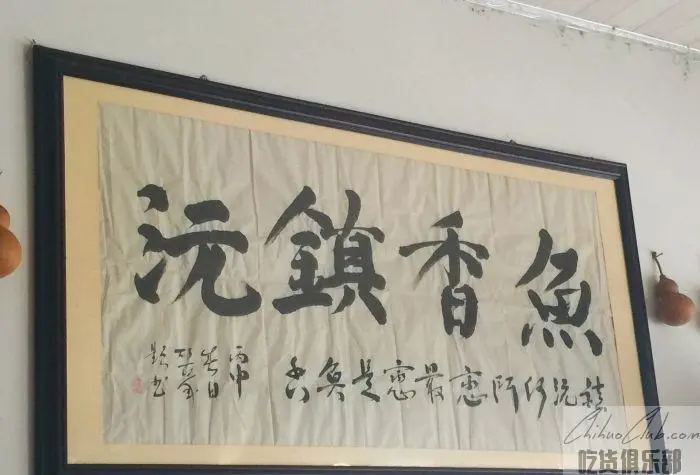 魚香鎮沅
沅何所恋最恋是魚香
丙申
春日
ChihuoClub.com
吃货俱乐部